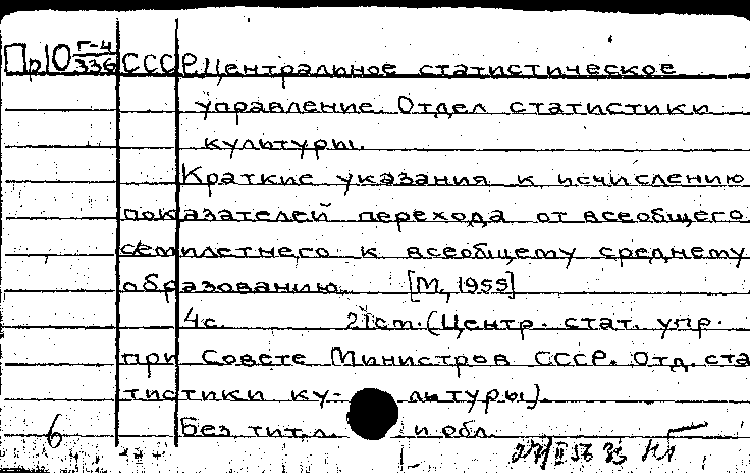 Пр10 Г-4/336 СССР. Центральное статистическое
управление. Отдел статистики
культуры.
Краткие указания к исчислению
показателей перехода от всеобщего
семилетнего к всеобщему среднему
образованию. [М., 1955]
4с. 21см. (Центр. стат. упр.
при Совете Министров СССР. Отд. ста
тистики ку- льтуры).
Без тит. л. и обл.
6